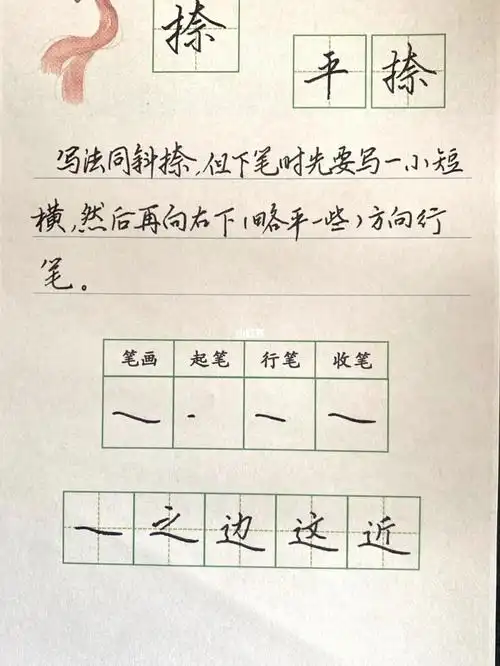 捺
平捺
写法同斜捺,但下笔时先要写一小短
横,然后再向右下(略平一些)方向行
笔。
笔画 起笔 行笔 收笔
之边这近